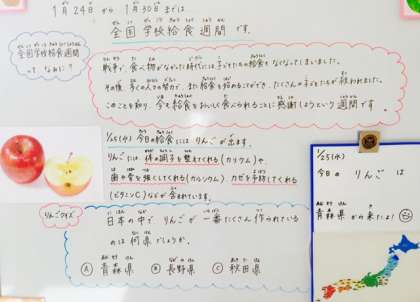 1月24日から1月30日までは
全国学校給食週間です。
全国学校給食週間
って なあに？
戦争で食べ物がなかった時代には子どもたちの給食もなくなってしまいました。
その後、多くの人々の努力で、また給食を始めることができ、たくさんの子どもたちが救われました。
このことを知り、今も給食をおいしく食べられることに感謝しようという週間です。
1/25(水) 今日の給食には りんごが 出ます。
りんごには 体の調子を整えてくれる(カリウム)や、
歯や骨を強くしてくれる(カルシウム)、カゼを予防してくれる
(ビタミンC)などが 含まれています。
りんごクイズ
日本の中で りんごが 一番たくさん 作られている
のは 何県でしょうか。
Ⓐ 青森県 Ⓑ 長野県 Ⓒ 秋田県
1/25(水)
今日の りんご は
青森県 から来たよ！